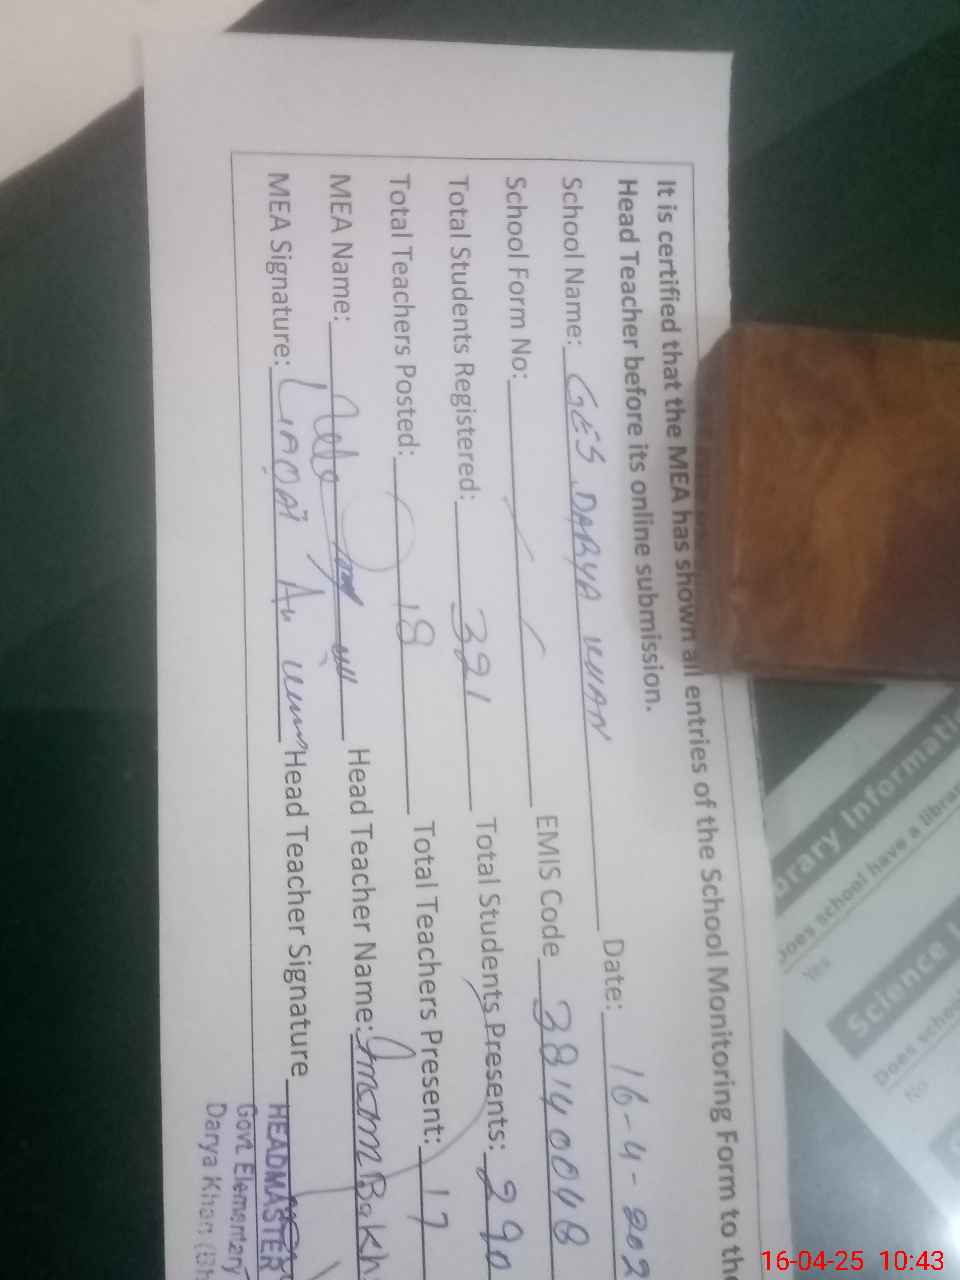 It is certified that the MEA has shown all entries of the School Monitoring Form to the
Head Teacher before its online submission.
School Name: GES DARYA KHAN Date: 16-4-202
School Form No: EMIS Code 38140048
Total Students Registered: 321 Total Students Presents: 290
Total Teachers Posted: 18 Total Teachers Present: 17
MEA Name: Head Teacher Name: Imam Bakh
MEA Signature: LIAQAT Head Teacher Signature
HEADMASTER
Govt. Elementary
Darya Khan (Bh
brary Informati
Does school have a librar
Yes
Science
Does schoo
No
16-04-25 10:43